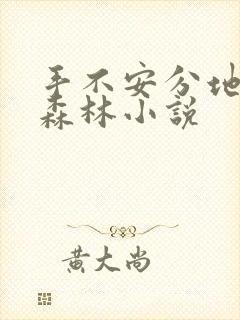 手不安分地
森林小說
黃大尚